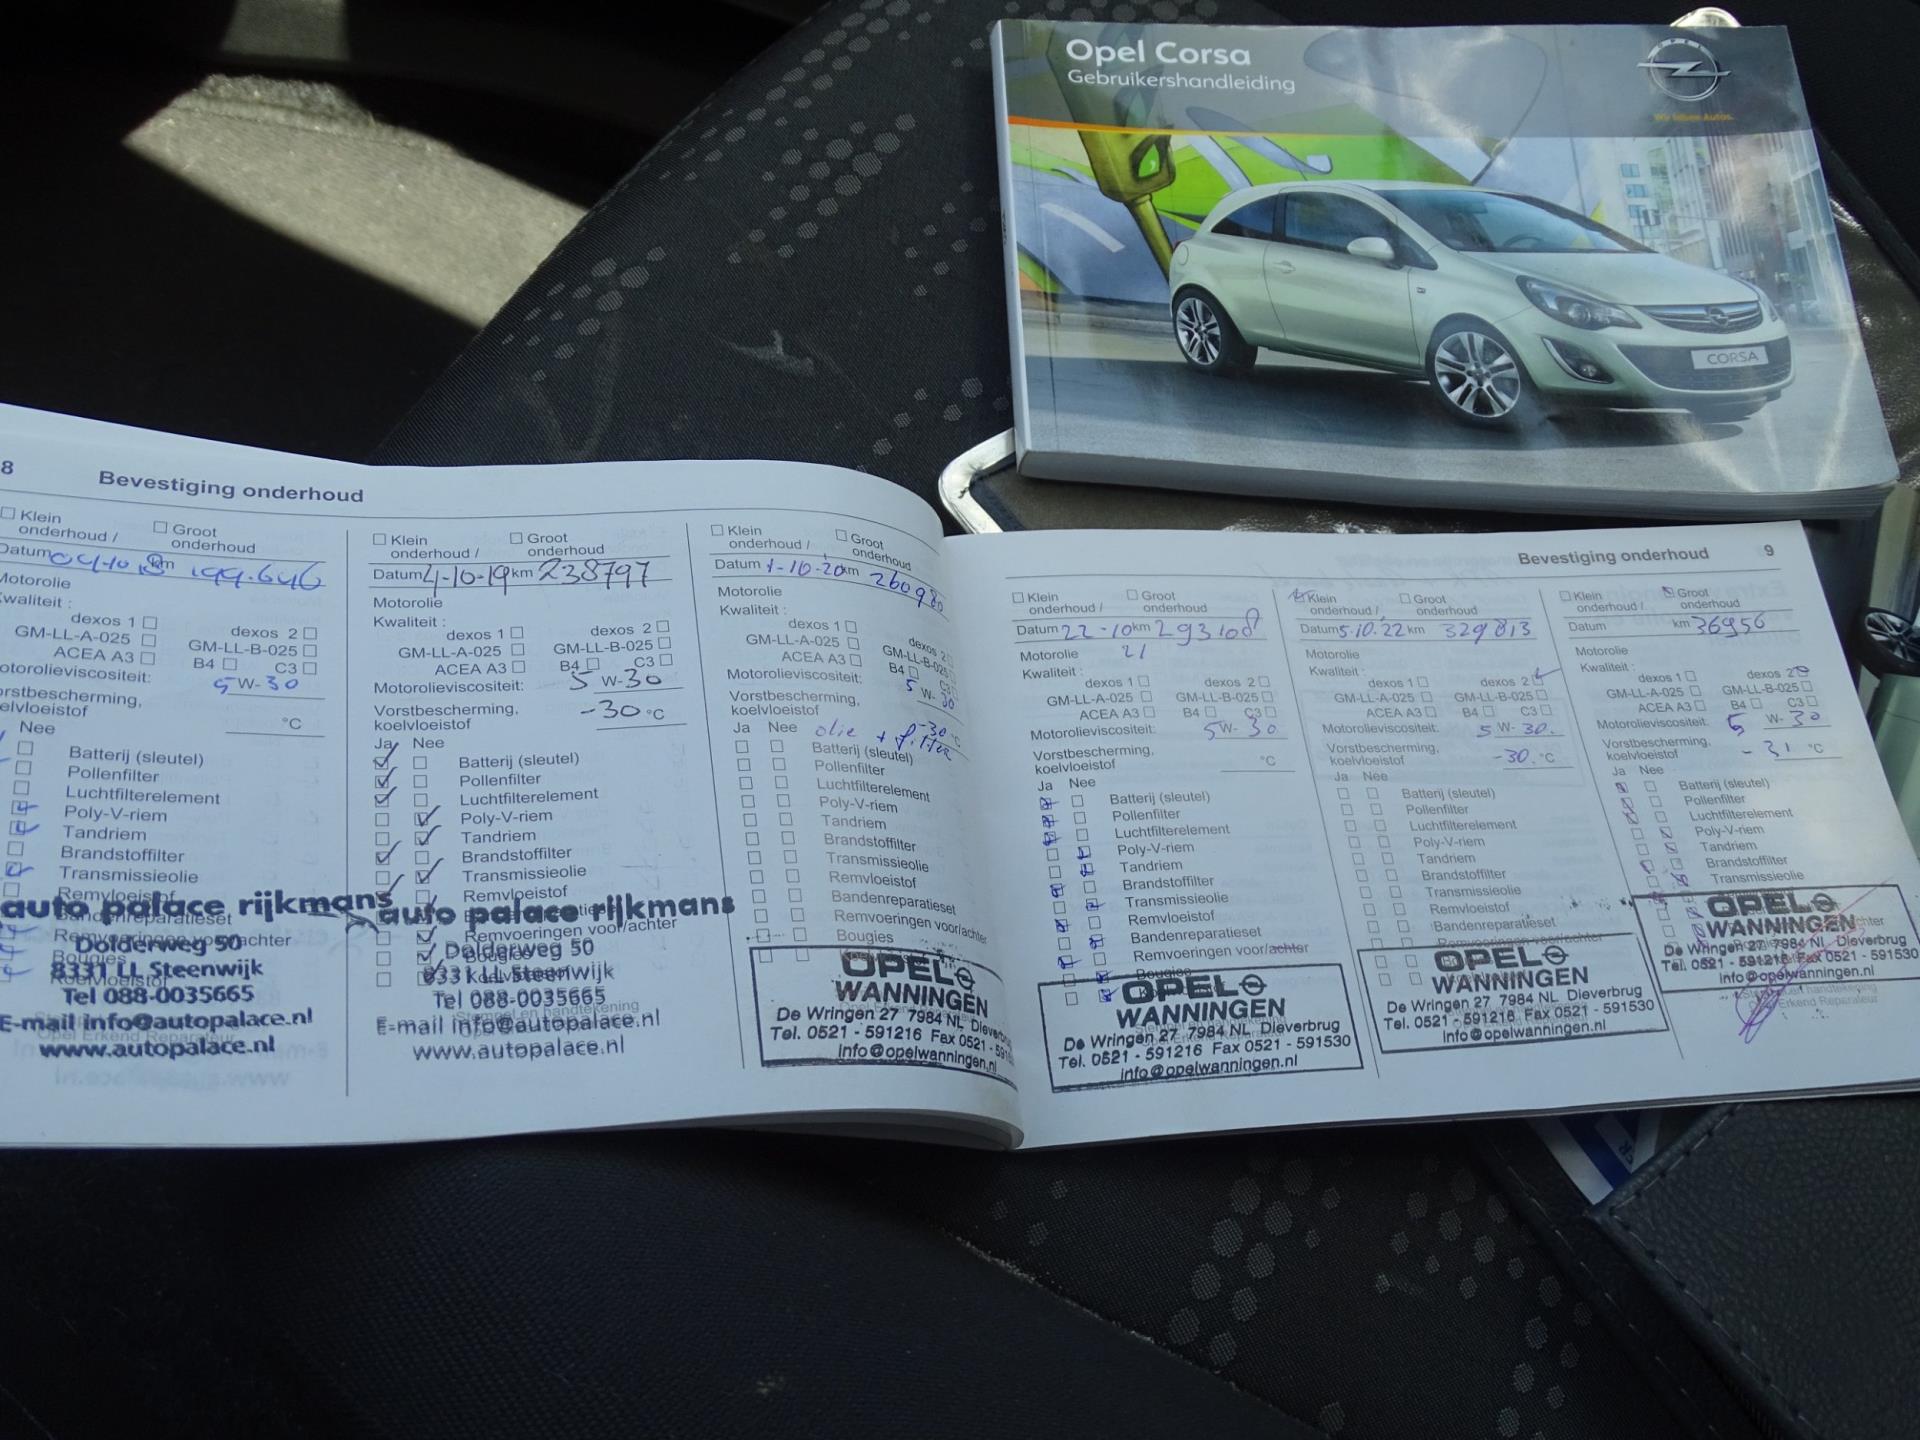 Opel Corsa
Gebruikershandleiding
OPEL
Wir leben Autos.
CORSA
8 Bevestiging onderhoud
Klein onderhoud / Groot onderhoud
Datum 04-10-18 km 199.646
Motorolie
Kwaliteit :
dexos 1 dexos 2
GM-LL-A-025 GM-LL-B-025
ACEA A3 B4 C3
Motorolieviscositeit: 5 W-30
Vorstbescherming,
koelvloeistof °C
Nee
Batterij (sleutel)
Pollenfilter
Luchtfilterelement
Poly-V-riem
Tandriem
Brandstoffilter
Transmissieolie
Remvloeistof
Bandenreparatieset
Remvoeringen voor/achter
Bougies
Koelvloeistof
auto palace rijkmans
Dolderweg 50
8331 LL Steenwijk
Tel 088-0035665
E-mail info@autopalace.nl
www.autopalace.nl
Klein onderhoud / Groot onderhoud
Datum 4-10-19 km 238797
Motorolie
Kwaliteit :
dexos 1 dexos 2
GM-LL-A-025 GM-LL-B-025
ACEA A3 B4 C3
Motorolieviscositeit: 5 W-30
Vorstbescherming,
koelvloeistof -30 °C
Ja Nee
Batterij (sleutel)
Pollenfilter
Luchtfilterelement
Poly-V-riem
Tandriem
Brandstoffilter
Transmissieolie
Remvloeistof
Remvoeringen voor/achter
Bougies
auto palace rijkmans
Dolderweg 50
8331 LL Steenwijk
Tel 088-0035665
E-mail info@autopalace.nl
www.autopalace.nl
Klein onderhoud / Groot onderhoud
Datum 1-10-20 km 260980
Motorolie
Kwaliteit :
dexos 1 dexos 2
GM-LL-A-025 GM-LL-B-025
ACEA A3 B4 C3
Motorolieviscositeit: 5 W-30
Vorstbescherming,
koelvloeistof -30 °C
Ja Nee olie + filter
Batterij (sleutel)
Pollenfilter
Luchtfilterelement
Poly-V-riem
Tandriem
Brandstoffilter
Transmissieolie
Remvloeistof
Bandenreparatieset
Remvoeringen voor/achter
Bougies
OPEL
WANNINGEN
De Wringen 27 7984 NL Dieverbrug
Tel. 0521 - 591216 Fax 0521 - 591530
info@opelwanningen.nl
Bevestiging onderhoud 9
Klein onderhoud / Groot onderhoud
Datum 22-10 km 293108
21
Motorolie
Kwaliteit :
dexos 1 dexos 2
GM-LL-A-025 GM-LL-B-025
ACEA A3 B4 C3
Motorolieviscositeit: 5 W-30
Vorstbescherming,
koelvloeistof °C
Ja Nee
Batterij (sleutel)
Pollenfilter
Luchtfilterelement
Poly-V-riem
Tandriem
Brandstoffilter
Transmissieolie
Remvloeistof
Bandenreparatieset
Remvoeringen voor/achter
Bougies
OPEL
WANNINGEN
De Wringen 27 7984 NL Dieverbrug
Tel. 0521 - 591216 Fax 0521 - 591530
info@opelwanningen.nl
Klein onderhoud / Groot onderhoud
Datum 5.10.22 km 329813
Motorolie
Kwaliteit :
dexos 1 dexos 2
GM-LL-A-025 GM-LL-B-025
ACEA A3 B4 C3
Motorolieviscositeit: 5 W-30.
Vorstbescherming,
koelvloeistof -30. °C
Ja Nee
Batterij (sleutel)
Pollenfilter
Luchtfilterelement
Poly-V-riem
Tandriem
Brandstoffilter
Transmissieolie
Remvloeistof
Bandenreparatieset
Remvoeringen voor/achter
OPEL
WANNINGEN
De Wringen 27 7984 NL Dieverbrug
Tel. 0521 - 591216 Fax 0521 - 591530
info@opelwanningen.nl
Klein onderhoud / Groot onderhoud
Datum km 36956
Motorolie
Kwaliteit :
dexos 1 dexos 2
GM-LL-A-025 GM-LL-B-025
ACEA A3 B4 C3
Motorolieviscositeit: 5 W-30
Vorstbescherming,
koelvloeistof -31 °C
Ja Nee
Batterij (sleutel)
Pollenfilter
Luchtfilterelement
Poly-V-riem
Tandriem
Brandstoffilter
Transmissieolie
OPEL
WANNINGEN
De Wringen 27 7984 NL Dieverbrug
Tel. 0521 - 591216 Fax 0521 - 591530
info@opelwanningen.nl
Stempel en handtekening
Opel Erkend Reparateur